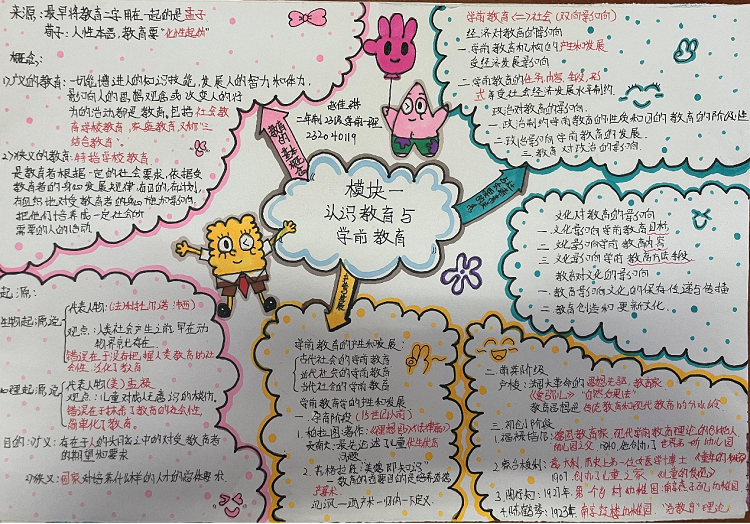 来源：最早将教育二字用在一起的是孟子
荀子：人性本恶，教育要"化性起伪"
概念：
1)广义的教育：一切能增进人的知识技能，发展人的智力和体力，
影响人的思想观念或改变人的行
为的活动都是教育，包括社会教
育学校教育，家庭教育
结合教育。
2)狭义的教育：特指学校教育
是教育者根据一定的社会要求，依据受
教育者的身心发展规律，有目的，有计划，
有组织地对受教育者的身心施加影响，
把他们培养成一定社会所
需要的人的活动
二年制23级学前一班
232040119
教育的
模块一
认识教育与
学前教育
学前教育(一)社会(双向影响)
经济对教育的影响
一.学前教育机构它的产生和发展
受经济发展影响
二.学前教育的任务，内容，手段，形
式等受社会经济发展水平制约
政治对教育的影响.
一.政治制约学前教育的性质和目的教育的阶段性
二.政治影响学前教育的发展.
三.教育对政治的影响.
文化对教育的影响
一.文化影响学前教育目标
二.文化影响学前教育内容
三.文化影响学前教育方法手段
教育对文化的影响
一.教育影响文化的保存传递与传播
二.教育创造和更新文化.
起源：
生物起源说
代表人物：(法)利托尔诺
观点：人类社会产生之前，早在动
物界就已存在.
错误在于没有把握人类教育的社
会性，生物化了教育
心理起源说
代表人物：(美)孟禄
观点：儿童对成人无意识的模仿.
错误在于抹杀了教育的社会性，
简单化了教育.
目的：1)广义：存在于人的头脑之中的对受教育者
的期望和要求
2)狭义：国家对培养什么样的人才的总体要求
学前教育的产生和发展：
古代社会的学前教育
近代社会的学前教育
当代社会的学前教育
学前教育学的产生和发展
一.孕育阶段(15世纪以前)
1.柏拉图：著作：《理想国》《法律篇》
贡献：最先论述了儿童优生优育
问题
2.苏格拉底："美德即知识"
教育的首要目的是培养道德
二.萌芽阶段
卢梭：法国大革命的思想先驱，教育家
《爱弥儿》"自然后果法"
教育思想是传统教育和现代教育的分水岭
三.初创阶段
1.福禄培尔：德国教育家，现代学前教育理论的代表人
幼儿园之父，1840，他创办了世界第一所幼儿园
2.蒙台梭利：意大利，历史上第一位女医学博士《童年的秘密》
1907，创办了儿童之家《儿童的发现》
3.陶行知：1927年，第一个乡村幼稚园：南京燕子矶幼稚园
4.陈鹤琴：1923年，南京鼓楼幼稚园"活教育"理论